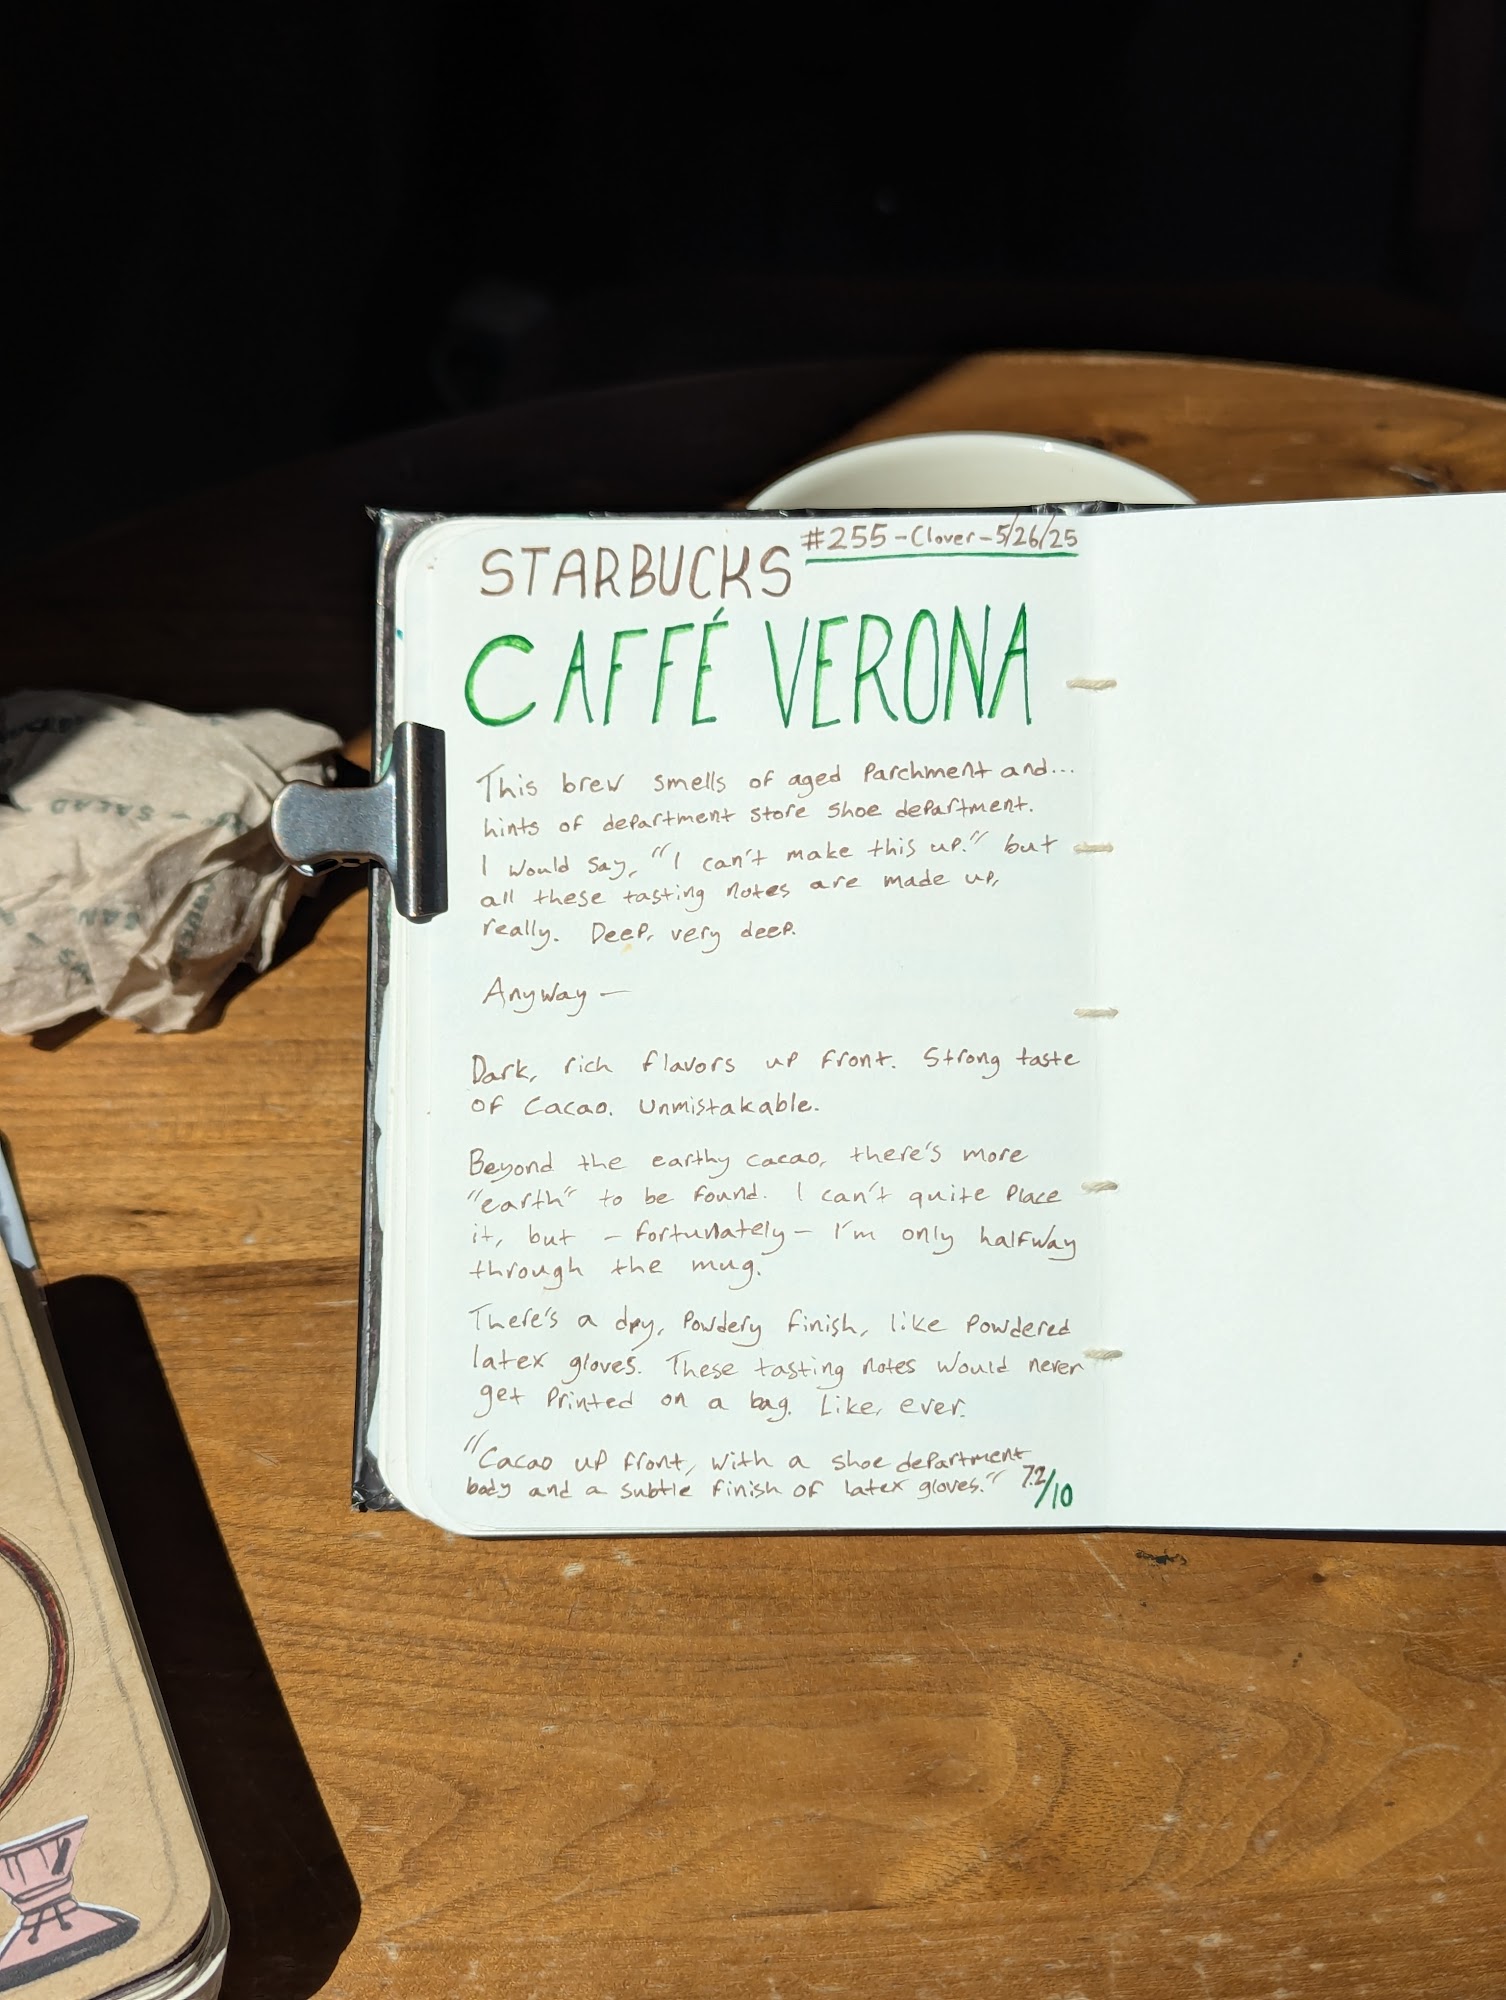 #255 - Clover - 5/26/25
STARBUCKS
CAFFÉ VERONA
This brew smells of aged parchment and...
hints of department store shoe department.
I would say, "I can't make this up." but
all these tasting notes are made up,
really. Deep, very deep.
Anyway —
Dark, rich flavors up front. Strong taste
of cacao. Unmistakable.
Beyond the earthy cacao, there's more
"earth" to be found. I can't quite place
it, but – fortunately – I'm only halfway
through the mug.
There's a dry, powdery finish, like powdered
latex gloves. These tasting notes would never
get printed on a bag. Like, ever.
"Cacao up front, with a shoe department
body and a subtle finish of latex gloves." 7.2/10